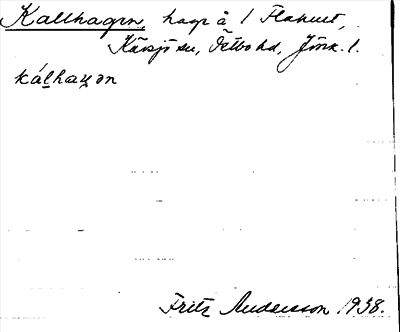 Kallhagen, hage å 1 Flahult,
Kävsjö sn, Östbo hd, Jönk. l.
kálhaγən
Fritz Andersson 1938.